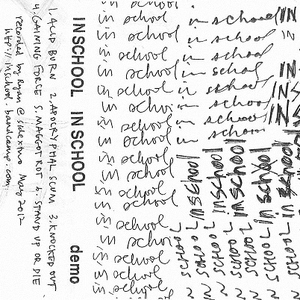 INSCHOOL INSCHOOL demo
1. ACID BURN 2. APOCRYPTAL SCUM 3. KNOCKED OUT
4. GAMING FORCE 5. MAGGOT ROT 6. STAND UP OR DIE
recorded by Ryan @ sidextwo May 2012
http://inschool.bandcamp.com
in school in school IN
in school in school
in school in school
in school in school
in school in school
in school in school INS
in school in school INS
in school in school INS
in school in school
in school
in school
in school
in school
in school
in school
in school
in school
in school
in school
inschool inschool inschool
SCHOOL SCHOOL SCHOOL SCHOOL